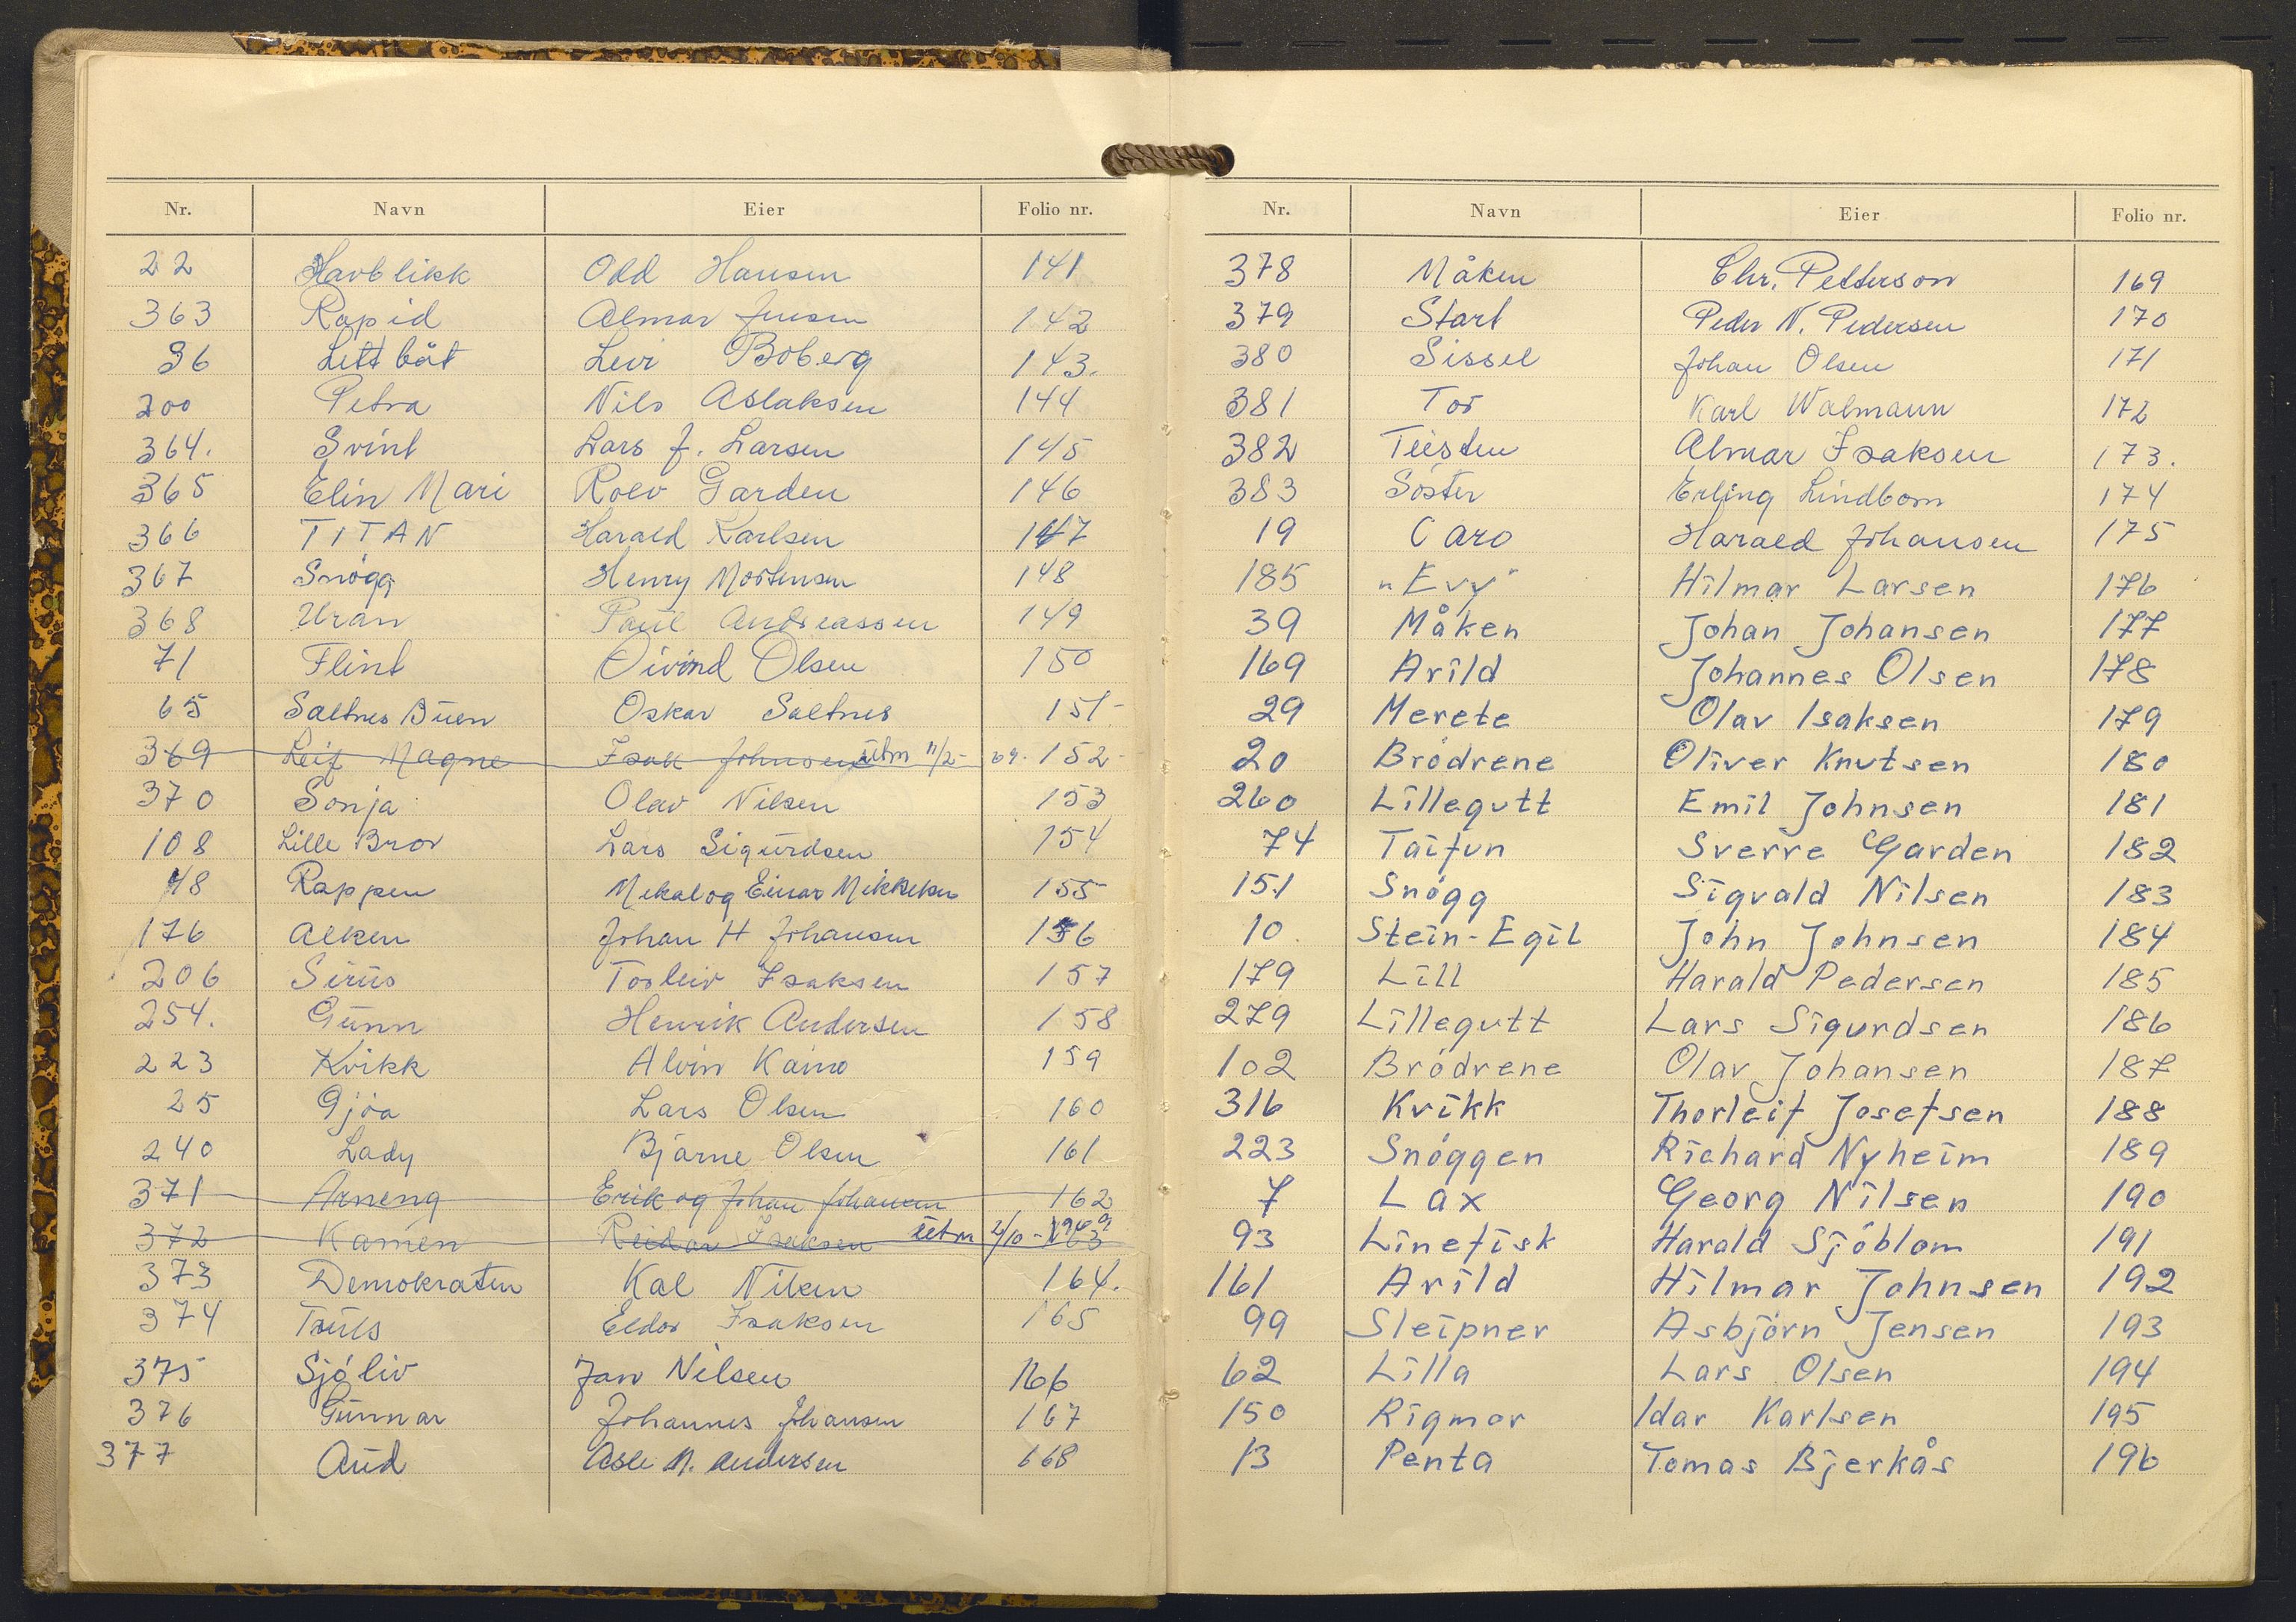 Nr. Navn Eier Folio nr.
22 Havblikk Odd Hansen 141
363 Rapid Almar Jensen 142
36 Lettbåt Levi Boberg 143.
200 Petra Nils Aslaksen 144
364. Svint Lars J. Larsen 145
365 Elin Mari Rolv Garden 146
366 TITAN Harald Karlsen 147
367 Snögg Henry Mortensen 148
368 Uran Paul Andreassen 149
71 Flint Öivind Olsen 150
65 Saltnes Buen Oskar Saltnes 151-
369 Leif Magne Isak Johnsen utm 11/2- 69. 152-
370 Sonja Olav Nilsen 153
108 Lille Bror Lars Sigurdsen 154
48 Rappen Mekal og Einar Mikkelsen 155
176 Alken Johan H Johansen 156
206 Sirius Torleiv Isaksen 157
254. Gunn Henrik Andersen 158
223 Kvikk Alvin Kaino 159
25 Gjöa Lars Olsen 160
240 Lady Bjarne Olsen 161
371 Arneng Erik og Johan Johansen 162
372 Kamen Reidar Isaksen utm 2/10-1969 163
373 Demokraten Kal Nilsen 164.
374 Truls Eldor Isaksen 165
375 Sjöliv Jan Nilsen 166
376 Gunnar Johannes Johansen 167
377 Aud Asle N. Andersen 168
Nr. Navn Eier Folio nr.
378 Måken Chr. Petterson 169
379 Start Peder N. Pedersen 170
380 Sissel Johan Olsen 171
381 Tor Karl Walmann 172
382 Teisten Almar Isaksen 173.
383 Söster Erling Lindbom 174
19 Caro Harald Johansen 175
185 "Evy" Hilmar Larsen 176
39 Måken Johan Johansen 177
169 Arild Johannes Olsen 178
29 Merete Olav Isaksen 179
20 Brödrene Oliver Knutsen 180
260 Lillegutt Emil Johnsen 181
74 Taifun Sverre Garden 182
151 Snögg Sigvald Nilsen 183
10 Stein-Egil John Johnsen 184
179 Lill Harald Pedersen 185
279 Lillegutt Lars Sigurdsen 186
102 Brödrene Olav Johansen 187
316 Kvikk Thorleif Josefsen 188
223 Snöggen Richard Nyheim 189
7 Lax Georg Nilsen 190
93 Linefisk Harald Sjöblom 191
161 Arild Hilmar Johnsen 192
99 Sleipner Asbjörn Jensen 193
62 Lilla Lars Olsen 194
150 Rigmor Idar Karlsen 195
13 Penta Tomas Bjerkås 196